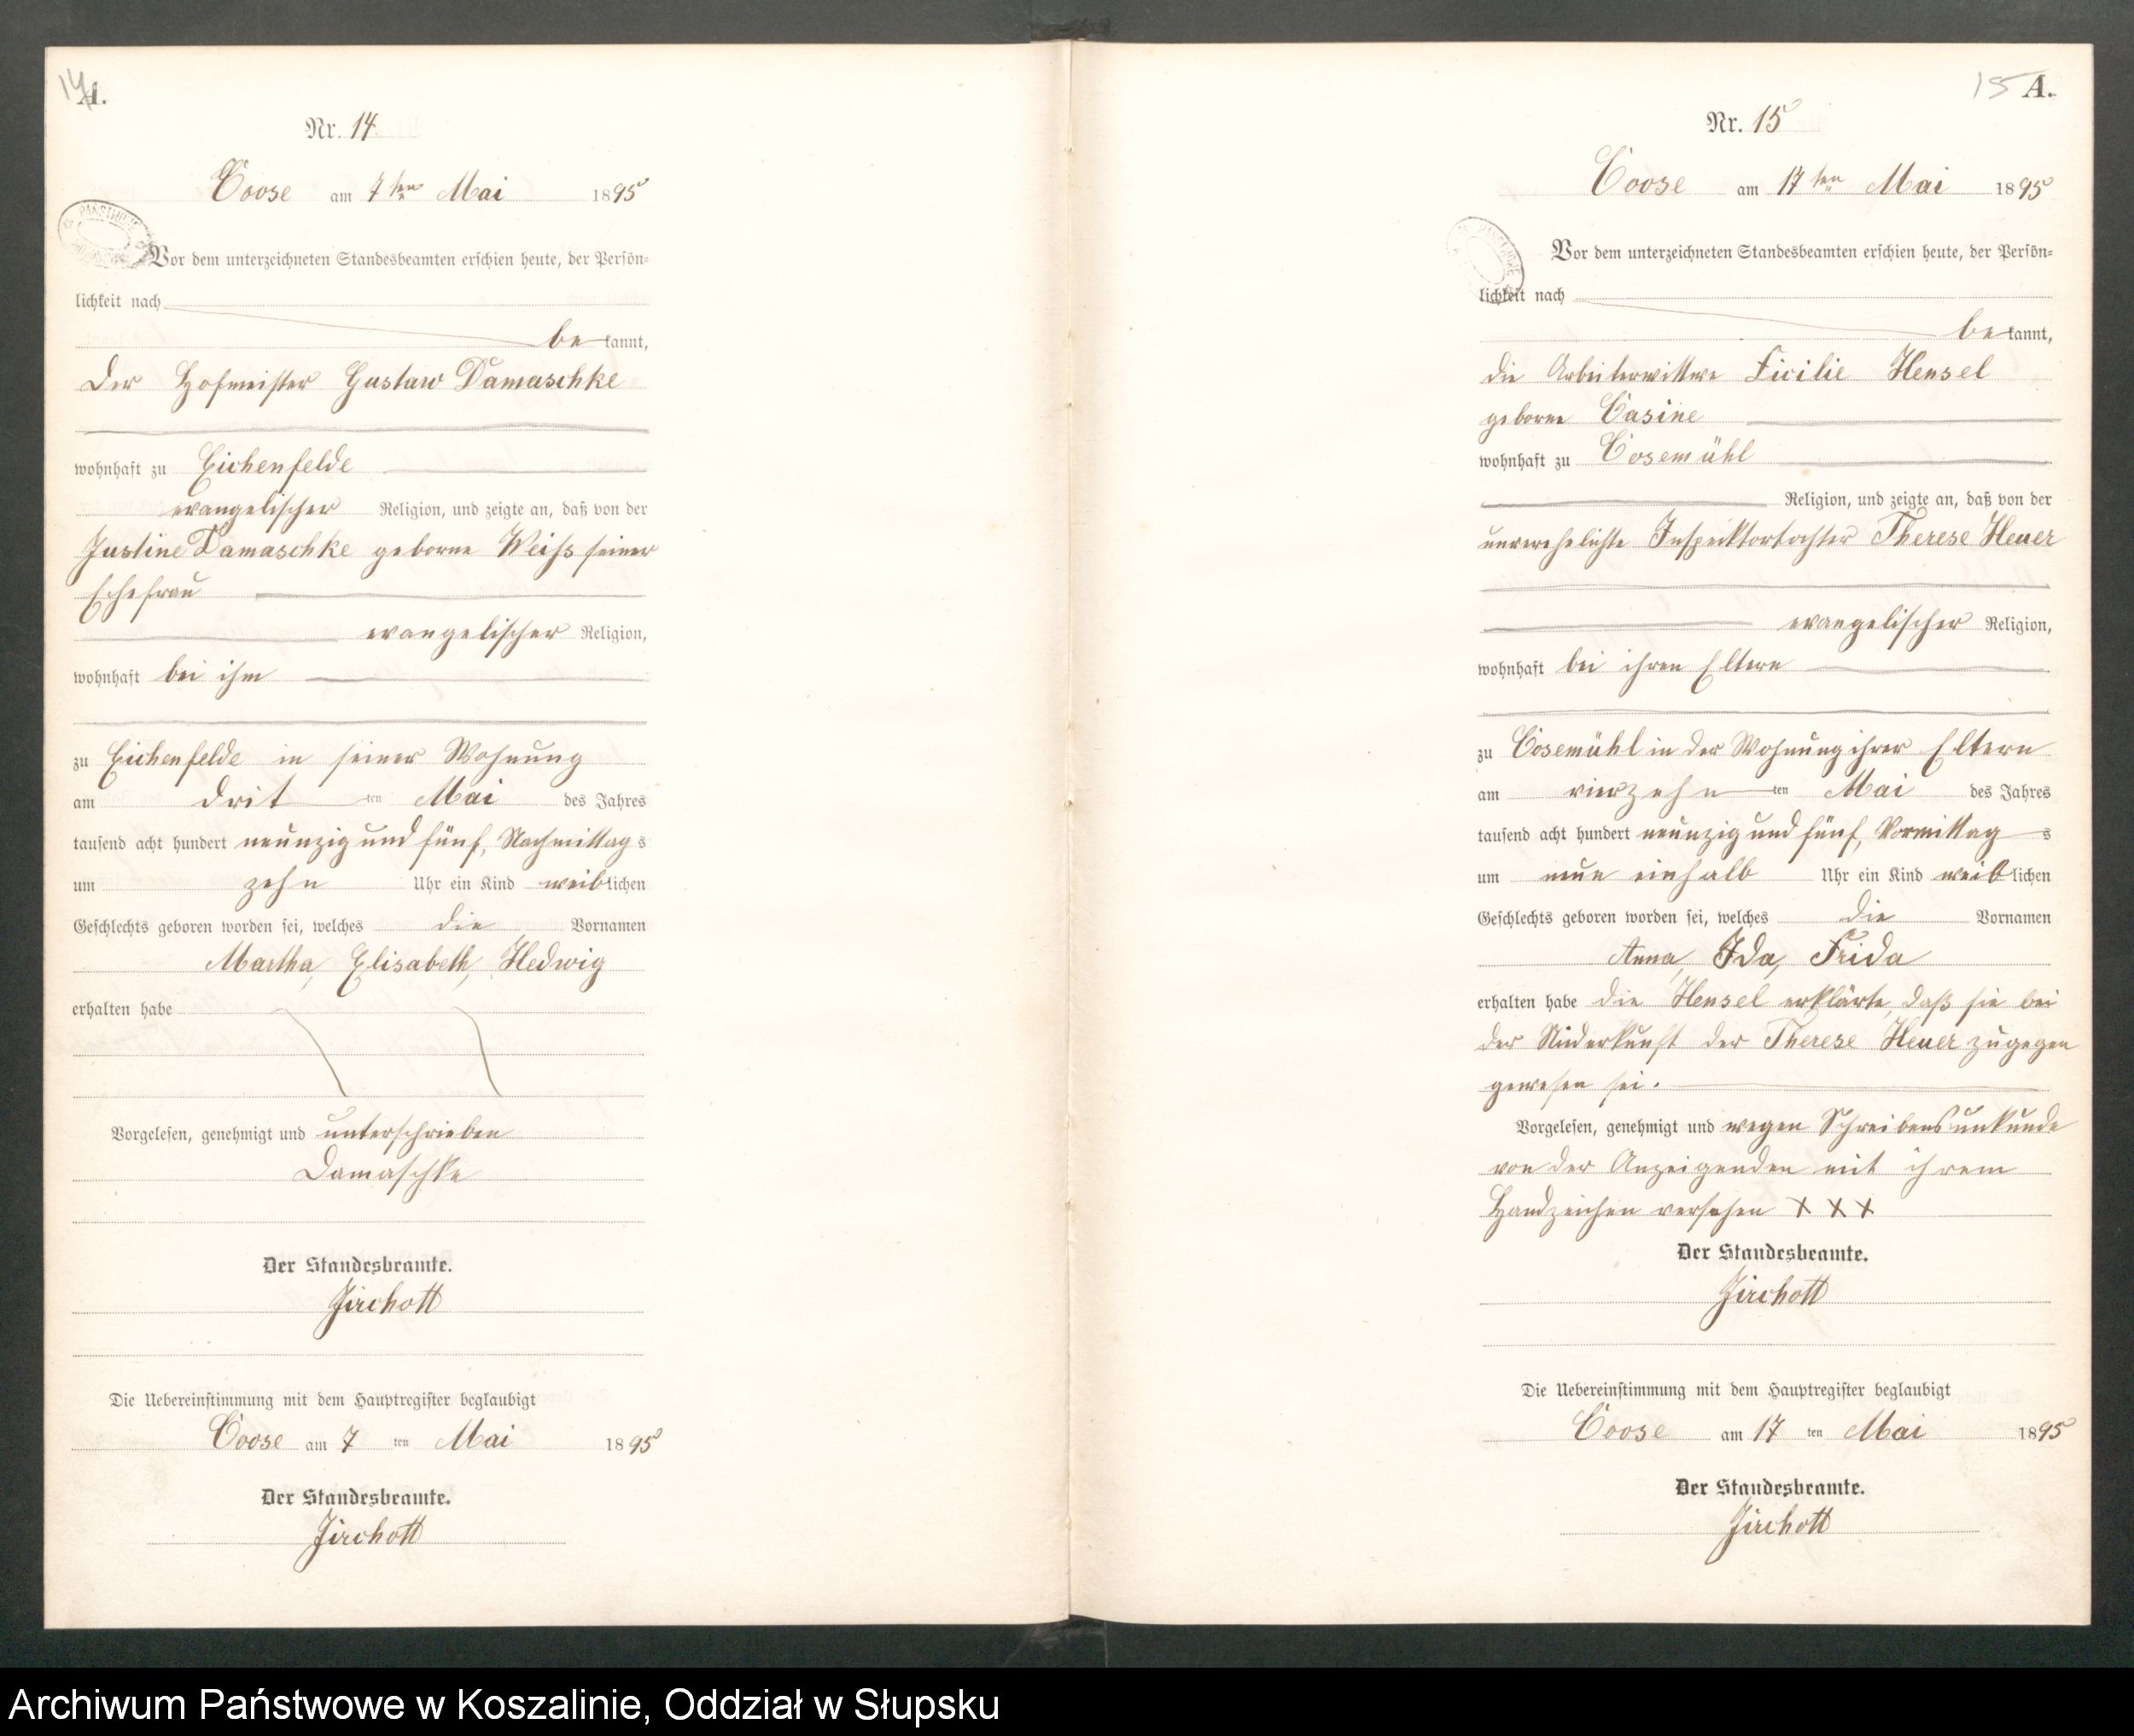 14 A.
Nr. 14
Coose am 7ten Mai 1895
Vor dem unterzeichneten Standesbeamten erschien heute, der Persön-
lichkeit nach
be kannt,
der Hofmeister Gustaw Damaschke
wohnhaft zu Eichenfelde
evangelischer Religion, und zeigte an, daß von der
Justine Damaschke geborne Weiß seiner
Ehefrau
evangelischer Religion,
wohnhaft bei ihm
zu Eichenfelde in seiner Wohnung
am drit ten Mai des Jahres
tausend acht hundert neunzig und fünf, Nachmittag s
um zehn Uhr ein Kind weiblichen
Geschlechts geboren worden sei, welches die Vornamen
Martha, Elisabeth, Hedwig
erhalten habe
Vorgelesen, genehmigt und unterschrieben
Damaschke
Der Standesbeamte.
Jirchott
Die Uebereinstimmung mit dem Hauptregister beglaubigt
Coose am 7 ten Mai 1895
Der Standesbeamte.
Jirchott
15 A.
Nr. 15
Coose am 17ten Mai 1895
Vor dem unterzeichneten Standesbeamten erschien heute, der Persön-
lichkeit nach
be kannt,
die Arbeiterwittwe Hensel
geborne Casine
wohnhaft zu Cosemühl
Religion, und zeigte an, daß von der
unverehelichte Inspecktortochter Therese Heuer
evangelischer Religion,
wohnhaft bei ihren Eltern
zu Cosemühl in der Wohnung ihrer Eltern
am vierzehn ten Mai des Jahres
tausend acht hundert neunzig und fünf, Vormittag s
um neun einhalb Uhr ein Kind weiblichen
Geschlechts geboren worden sei, welches die Vornamen
Anna, Ida, Frida
erhalten habe die Hensel erklärte, daß sie bei
der Niederkunft der Therese Heuer zugegen
gewesen sei.
Vorgelesen, genehmigt und wegen Schreibensunkunde
von der Anzeigenden mit ihrem
Handzeichen versehen X X X
Der Standesbeamte.
Jirchott
Die Uebereinstimmung mit dem Hauptregister beglaubigt
Coose am 17 ten Mai 1895
Der Standesbeamte.
Jirchott
Archiwum Państwowe w Koszalinie, Oddział w Słupsku